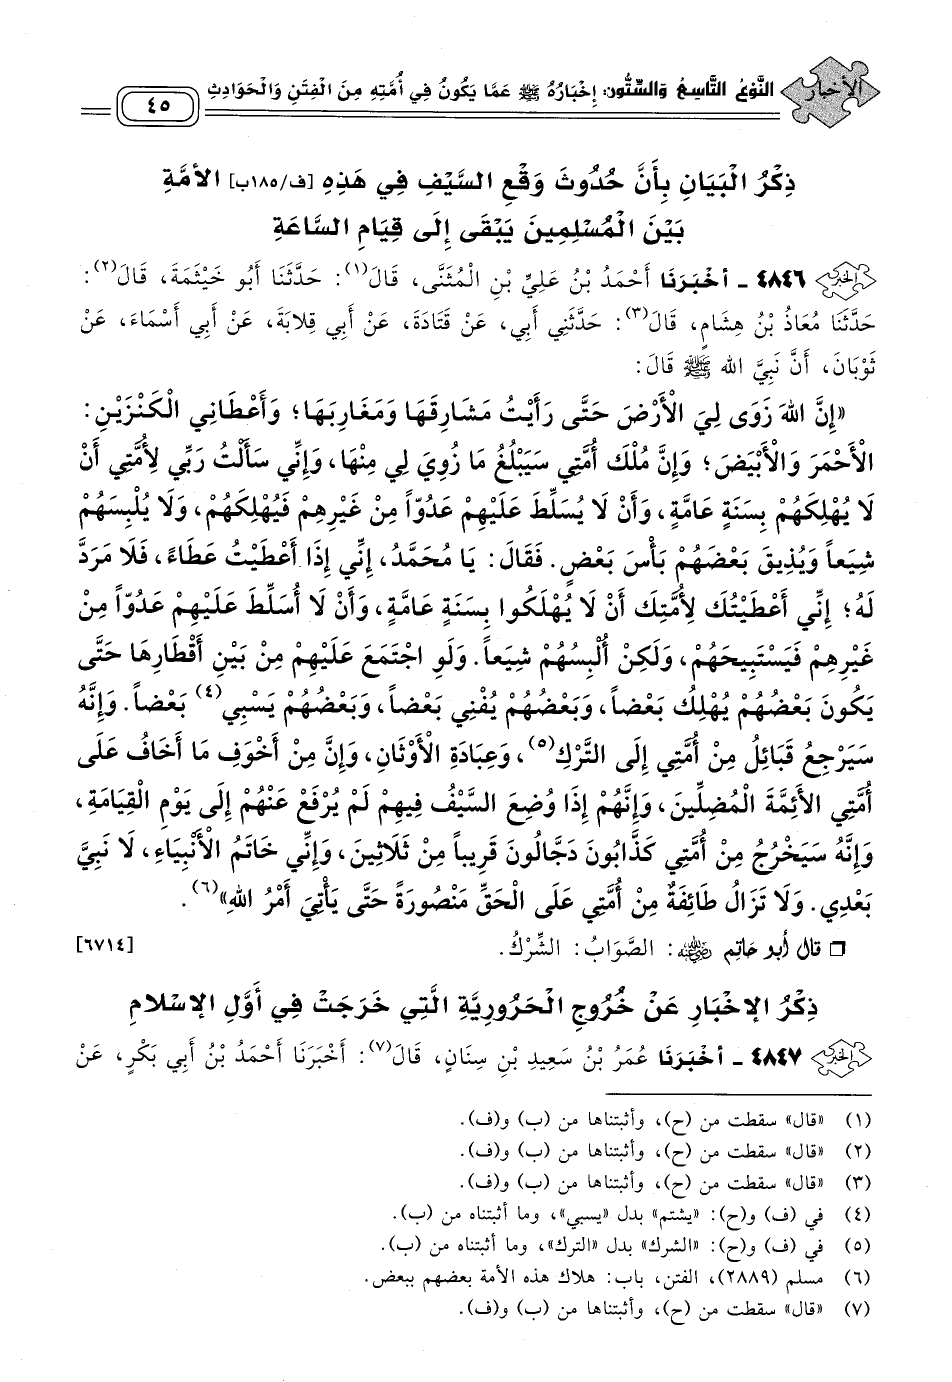 الأخبار
النَّوْعُ التَّاسِعُ وَالسِّتُّون: إخْبَارُهُ ﷺ عَمَّا يَكُونُ فِي أُمَّتِهِ مِنَ الْفِتَنِ وَالْحَوَادِثِ
٤٥
ذِكْرُ الْبَيَانِ بِأَنَّ حُدُوثَ وَقْعِ السَّيْفِ فِي هَذِهِ [ف/١٨٥ب] الأمَّةِ
بَيْنَ الْمُسْلِمِينَ يَبْقَى إِلَى قِيَامِ السَّاعَةِ
٤٨٤٦ - أخْبَرَنَا أَحْمَدُ بْنُ عَلِيِّ بْنِ الْمُثَنَّى، قَالَ(١): حَدَّثَنَا أَبُو خَيْثَمَةَ، قَالَ(٢):
حَدَّثَنَا مُعَاذُ بْنُ هِشَامٍ، قَالَ(٣): حَدَّثَنِي أَبِي، عَنْ قَتَادَةَ، عَنْ أَبِي قِلَابَةَ، عَنْ أَبِي أَسْمَاءَ، عَنْ
ثَوْبَانَ، أَنَّ نَبِيَّ الله ﷺ قَالَ:
«إِنَّ اللهَ زَوَى لِيَ الْأَرْضَ حَتَّى رَأَيْتُ مَشَارِقَهَا وَمَغَارِبَهَا؛ وَأَعْطَانِي الْكَنْزَيْنِ:
الْأَحْمَرَ وَالْأَبْيَضَ؛ وَإِنَّ مُلْكَ أُمَّتِي سَيَبْلُغُ مَا زُوِيَ لِي مِنْهَا، وَإِنِّي سَأَلْتُ رَبِّي لِأُمَّتِي أَنْ
لَا يُهْلِكَهُمْ بِسَنَةٍ عَامَّةٍ، وَأَنْ لَا يُسَلِّطَ عَلَيْهِمْ عَدُوّاً مِنْ غَيْرِهِمْ فَيُهْلِكَهُمْ، وَلَا يُلْبِسَهُمْ
شِيَعاً وَيُذِيقَ بَعْضَهُمْ بَأْسَ بَعْضٍ. فَقَالَ: يَا مُحَمَّدُ، إِنِّي إِذَا أَعْطَيْتُ عَطَاءً، فَلَا مَرَدَّ
لَهُ؛ إِنِّي أَعْطَيْتُكَ لِأُمَّتِكَ أَنْ لَا يُهْلَكُوا بِسَنَةٍ عَامَّةٍ، وَأَنْ لَا أُسَلِّطَ عَلَيْهِمْ عَدُوّاً مِنْ
غَيْرِهِمْ فَيَسْتَبِيحَهُمْ، وَلَكِنْ أُلْبِسُهُمْ شِيَعاً. وَلَوِ اجْتَمَعَ عَلَيْهِمْ مِنْ بَيْنِ أَقْطَارِهَا حَتَّى
يَكُونَ بَعْضُهُمْ يُهْلِكُ بَعْضاً، وَبَعْضُهُمْ يُفْنِي بَعْضاً، وَبَعْضُهُمْ يَسْبِي(٤) بَعْضاً. وَإِنَّهُ
سَيَرْجِعُ قَبَائِلُ مِنْ أُمَّتِي إِلَى التُّرْكِ(٥)، وَعِبَادَةِ الْأَوْثَانِ، وَإِنَّ مِنْ أَخْوَفِ مَا أَخَافُ عَلَى
أُمَّتِي الأَئِمَّةَ الْمُضِلِّينَ، وَإِنَّهُمْ إِذَا وُضِعَ السَّيْفُ فِيهِمْ لَمْ يُرْفَعْ عَنْهُمْ إِلَى يَوْمِ الْقِيَامَةِ،
وَإِنَّهُ سَيَخْرُجُ مِنْ أُمَّتِي كَذَّابُونَ دَجَّالُونَ قَرِيباً مِنْ ثَلَاثِينَ، وَإِنِّي خَاتَمُ الْأَنْبِيَاءِ، لَا نَبِيَّ
بَعْدِي. وَلَا تَزَالُ طَائِفَةٌ مِنْ أُمَّتِي عَلَى الْحَقِّ مَنْصُورَةً حَتَّى يَأْتِيَ أَمْرُ اللهِ»(٦).
□ قال أبو حاتِم رضي الله عنه: الصَّوَابُ: الشِّرْكُ. [٦٧١٤]
ذِكْرُ الإخْبَارِ عَنْ خُرُوجِ الْحَرُورِيَّةِ الَّتِي خَرَجَتْ فِي أَوَّلِ الإسْلامِ
٤٨٤٧ - أخْبَرَنَا عُمَرُ بْنُ سَعِيدِ بْنِ سِنَانٍ، قَالَ(٧): أَخْبَرَنَا أَحْمَدُ بْنُ أَبِي بَكْرٍ، عَنْ
(١) «قال» سقطت من (ح)، وأثبتناها من (ب) و(ف).
(٢) «قال» سقطت من (ح)، وأثبتناها من (ب) و(ف).
(٣) «قال» سقطت من (ح)، وأثبتناها من (ب) و(ف).
(٤) في (ف) و(ح): «يشتم» بدل «يسبي»، وما أثبتناه من (ب).
(٥) في (ف) و(ح): «الشرك» بدل «الترك»، وما أثبتناه من (ب).
(٦) مسلم (٢٨٨٩)، الفتن، باب: هلاك هذه الأمة بعضهم ببعض.
(٧) «قال» سقطت من (ح)، وأثبتناها من (ب) و(ف).